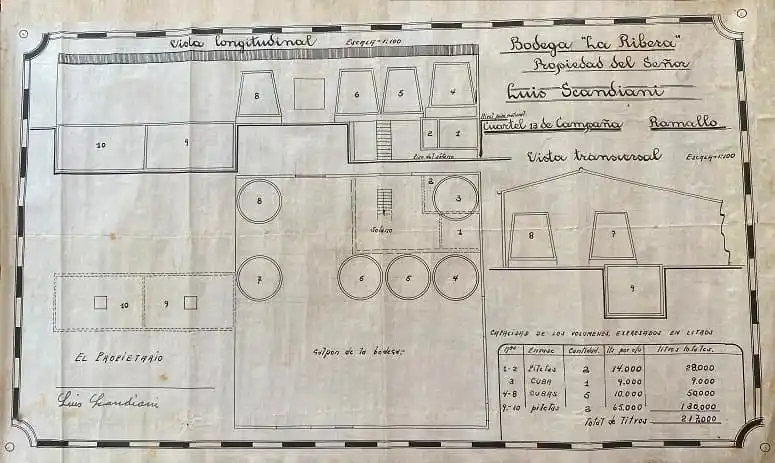 Vista longitudinal Escala=1:100
Bodega "La Ribera"
Propiedad del Señor
Luis Scandiani
Cuartel 13 de Campaña Ramallo
Vista transversal Escala=1:100
8
6
5
4
10
9
2
1
Piso del sótano
8
2
3
Sótano
1
7
6
5
4
10
9
8
7
9
Galpon de la bodega
El Propietario
Luis Scandiani
Capacidad de los volumenes, expresados en litros
Nos Envase Cantidad. lts por c/u litros totales.
1-2 Piletas 2 14.000 28.000
3 Cuba 1 9.000 9.000
4-8 Cubas 5 10.000 50.000
9-10 piletas 2 65.000 130.000
Total de litros 217.000